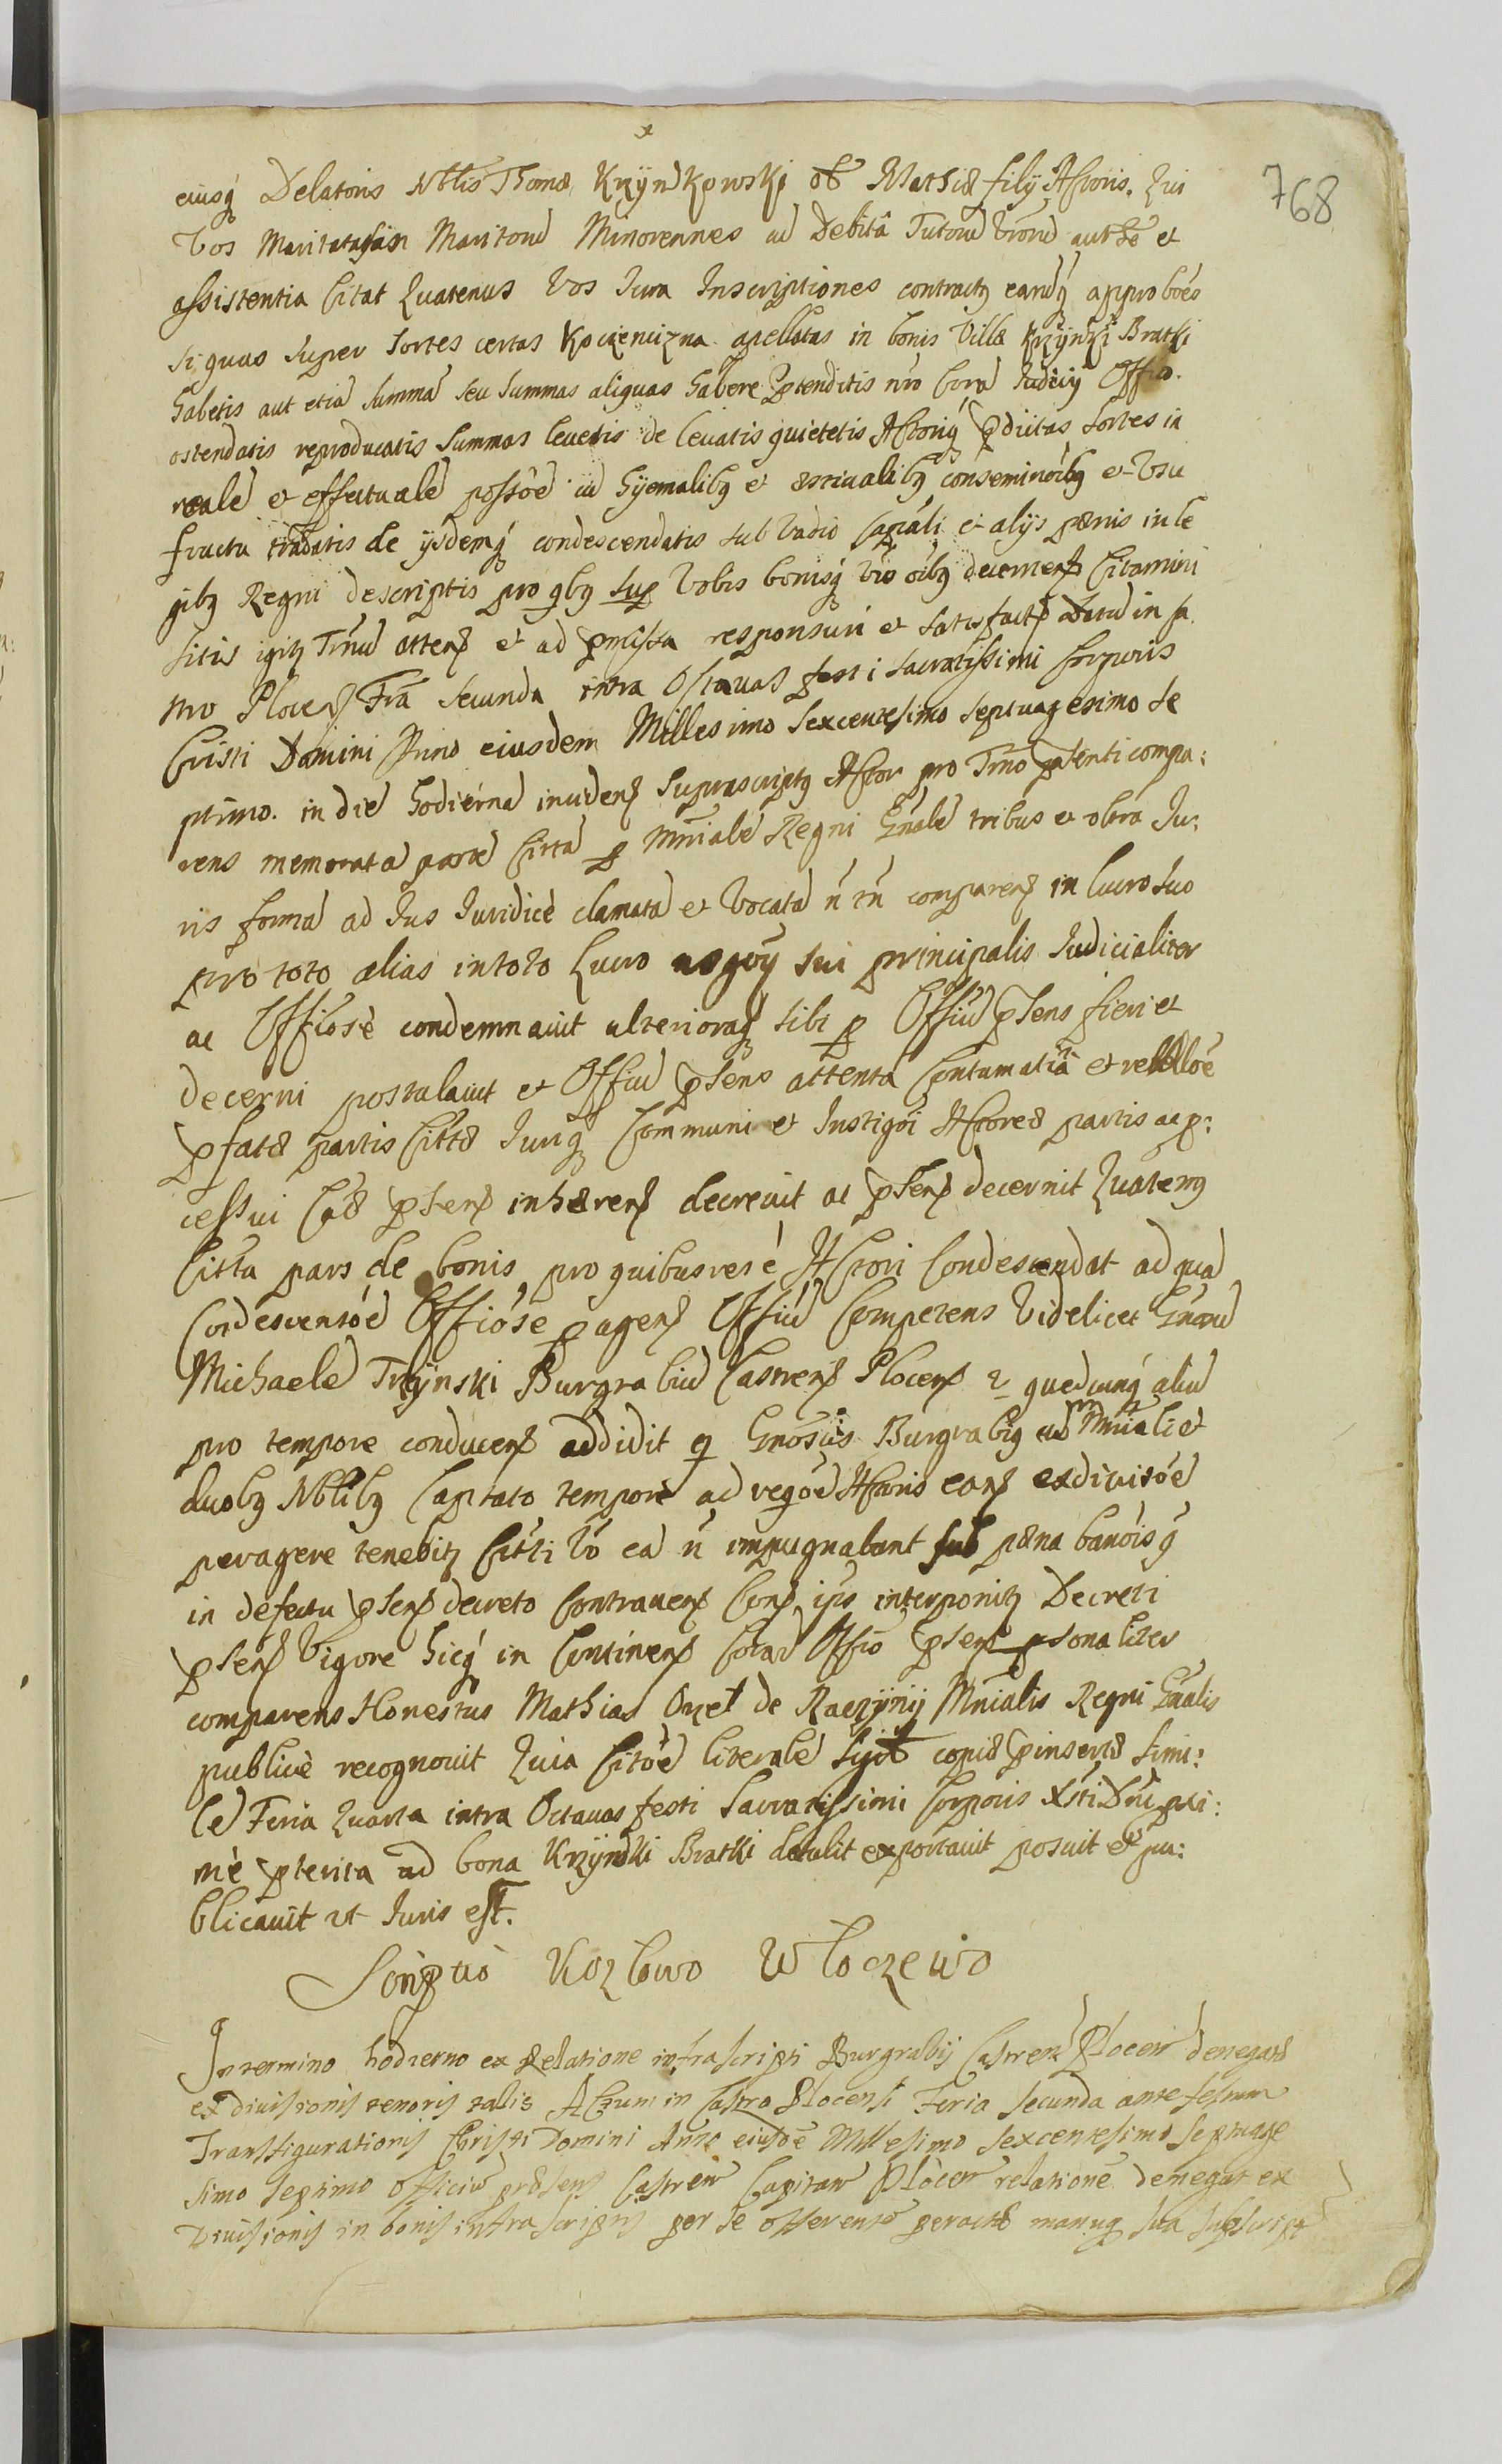 768
eiusq Delatoris Nblis Thomæ Krzÿndkowski ob Mathiæ filÿ Actoris. Qui
Vos Maritatas in Maritorū Minorennes ad Debitā Tutorū Vrorū authē et
assistentia Citat Quatenus Vos Iura Inscriptiones contractq earūq approbōes
si quas super Sortes certas apellatas in bonis Villæ Krzÿnki Bratki
habetis aut etiā summā seu summas aliquas habere ptenditis nro Corā Iudicÿ Offio.
ostendatis reproducatis summas levetis de levatis quietetis Actoriq pdictas sortes in
realē et effectualē possōē cū hÿemalibq et æstivalibq conseminōibq et Vsu
fructu tradatis de ÿsdemq condescendatis sub Vadio capāli et alÿs pænis in le
gibq Regni descriptis pro qbq sup Vobis bonisq Vris oibq decernen Citamini
sitis igitz Trnū atten et ad pmissa responsuri et satisfact in ca
stro Plocen Fra secunda intra Octavas festi sacratissimi Corporis
Christi Domini Anno eiusdem Millesimo sexcentesimo septuagesimo se
ptimo. in die hodiernā inciden suprascriptq Actor pro Trno psenti compa:
rens memoratā partē Cittā p Mnialē Regni Gnalē tribus et obra Iu:
ris formā ad Ius Iuridicè clamatā et Vocatā ñ tñ comparen in lucro suo
pro toto alias in toto Lucro negoÿ sui principalis Iudicialiter
ac Offiosè condemnavit ulterioraq sibi p Offiū psens fieri et
decerni postulavit et Offiū psens attentā Contumatiā et rebellōē
pfatæ partis Cittæ Iuriq Communi et Instigōi Actoreæ partis ac p:
cessui Cæ psen inhæren decrevit ac psen decernit Quatenq
Citta pars de bonis pro quibus res è Actori Condescendat ad quā
Condescensōē Offiose pagen Offiū Competens Videlicet Gnosū
Michaelē Trzÿnski Burgrabiū Castren Plocen et quemcunq aliū
pro tempore conducen addidit q Gnosus Burgrabiq cū Mniali et
duobq Nblibq Captato tempore ad reqōē Actoris ean exdivisōē
peragere tenebitz Citti Vō eā ñ impugnabunt sub pæna banōisq
in defectu psen decreto Contraven Con ips interponitz Decreti
psen Vigore hicq in Continen Corā Offio psen psonaliter
comparens Honestus Mathias Orzeł de Raczÿnÿ Mnialis Regni Gnalis
publicè recognovit Quia Citōē literalē copiæ pinsertæ simi:
lē Feria Quarta intra Octavas festi Sacratissimi Corporis Xsti Dni pxi:
mè pterita ad bona Krzÿnki Bratki detulit exportavit posuit et pu:
blicavit ut Iuris est.
Kozłowo Włoczewo
In termino hodierno ex Relatione infrascripti Burgrabij Castren Plocen denegatæ
ex divisionis tenoris talis Actum in Castro Plocensi Feria secunda ante festum
Transfigurationis Christi Domini Anno eiusdē Millesimo sexcentesimo septuage
simo septimo officiū præsens Castren Capitan Plocen relationē denegat ex
Divisionis in bonis infrascriptis per se offerente peractæ manuq sua subscript